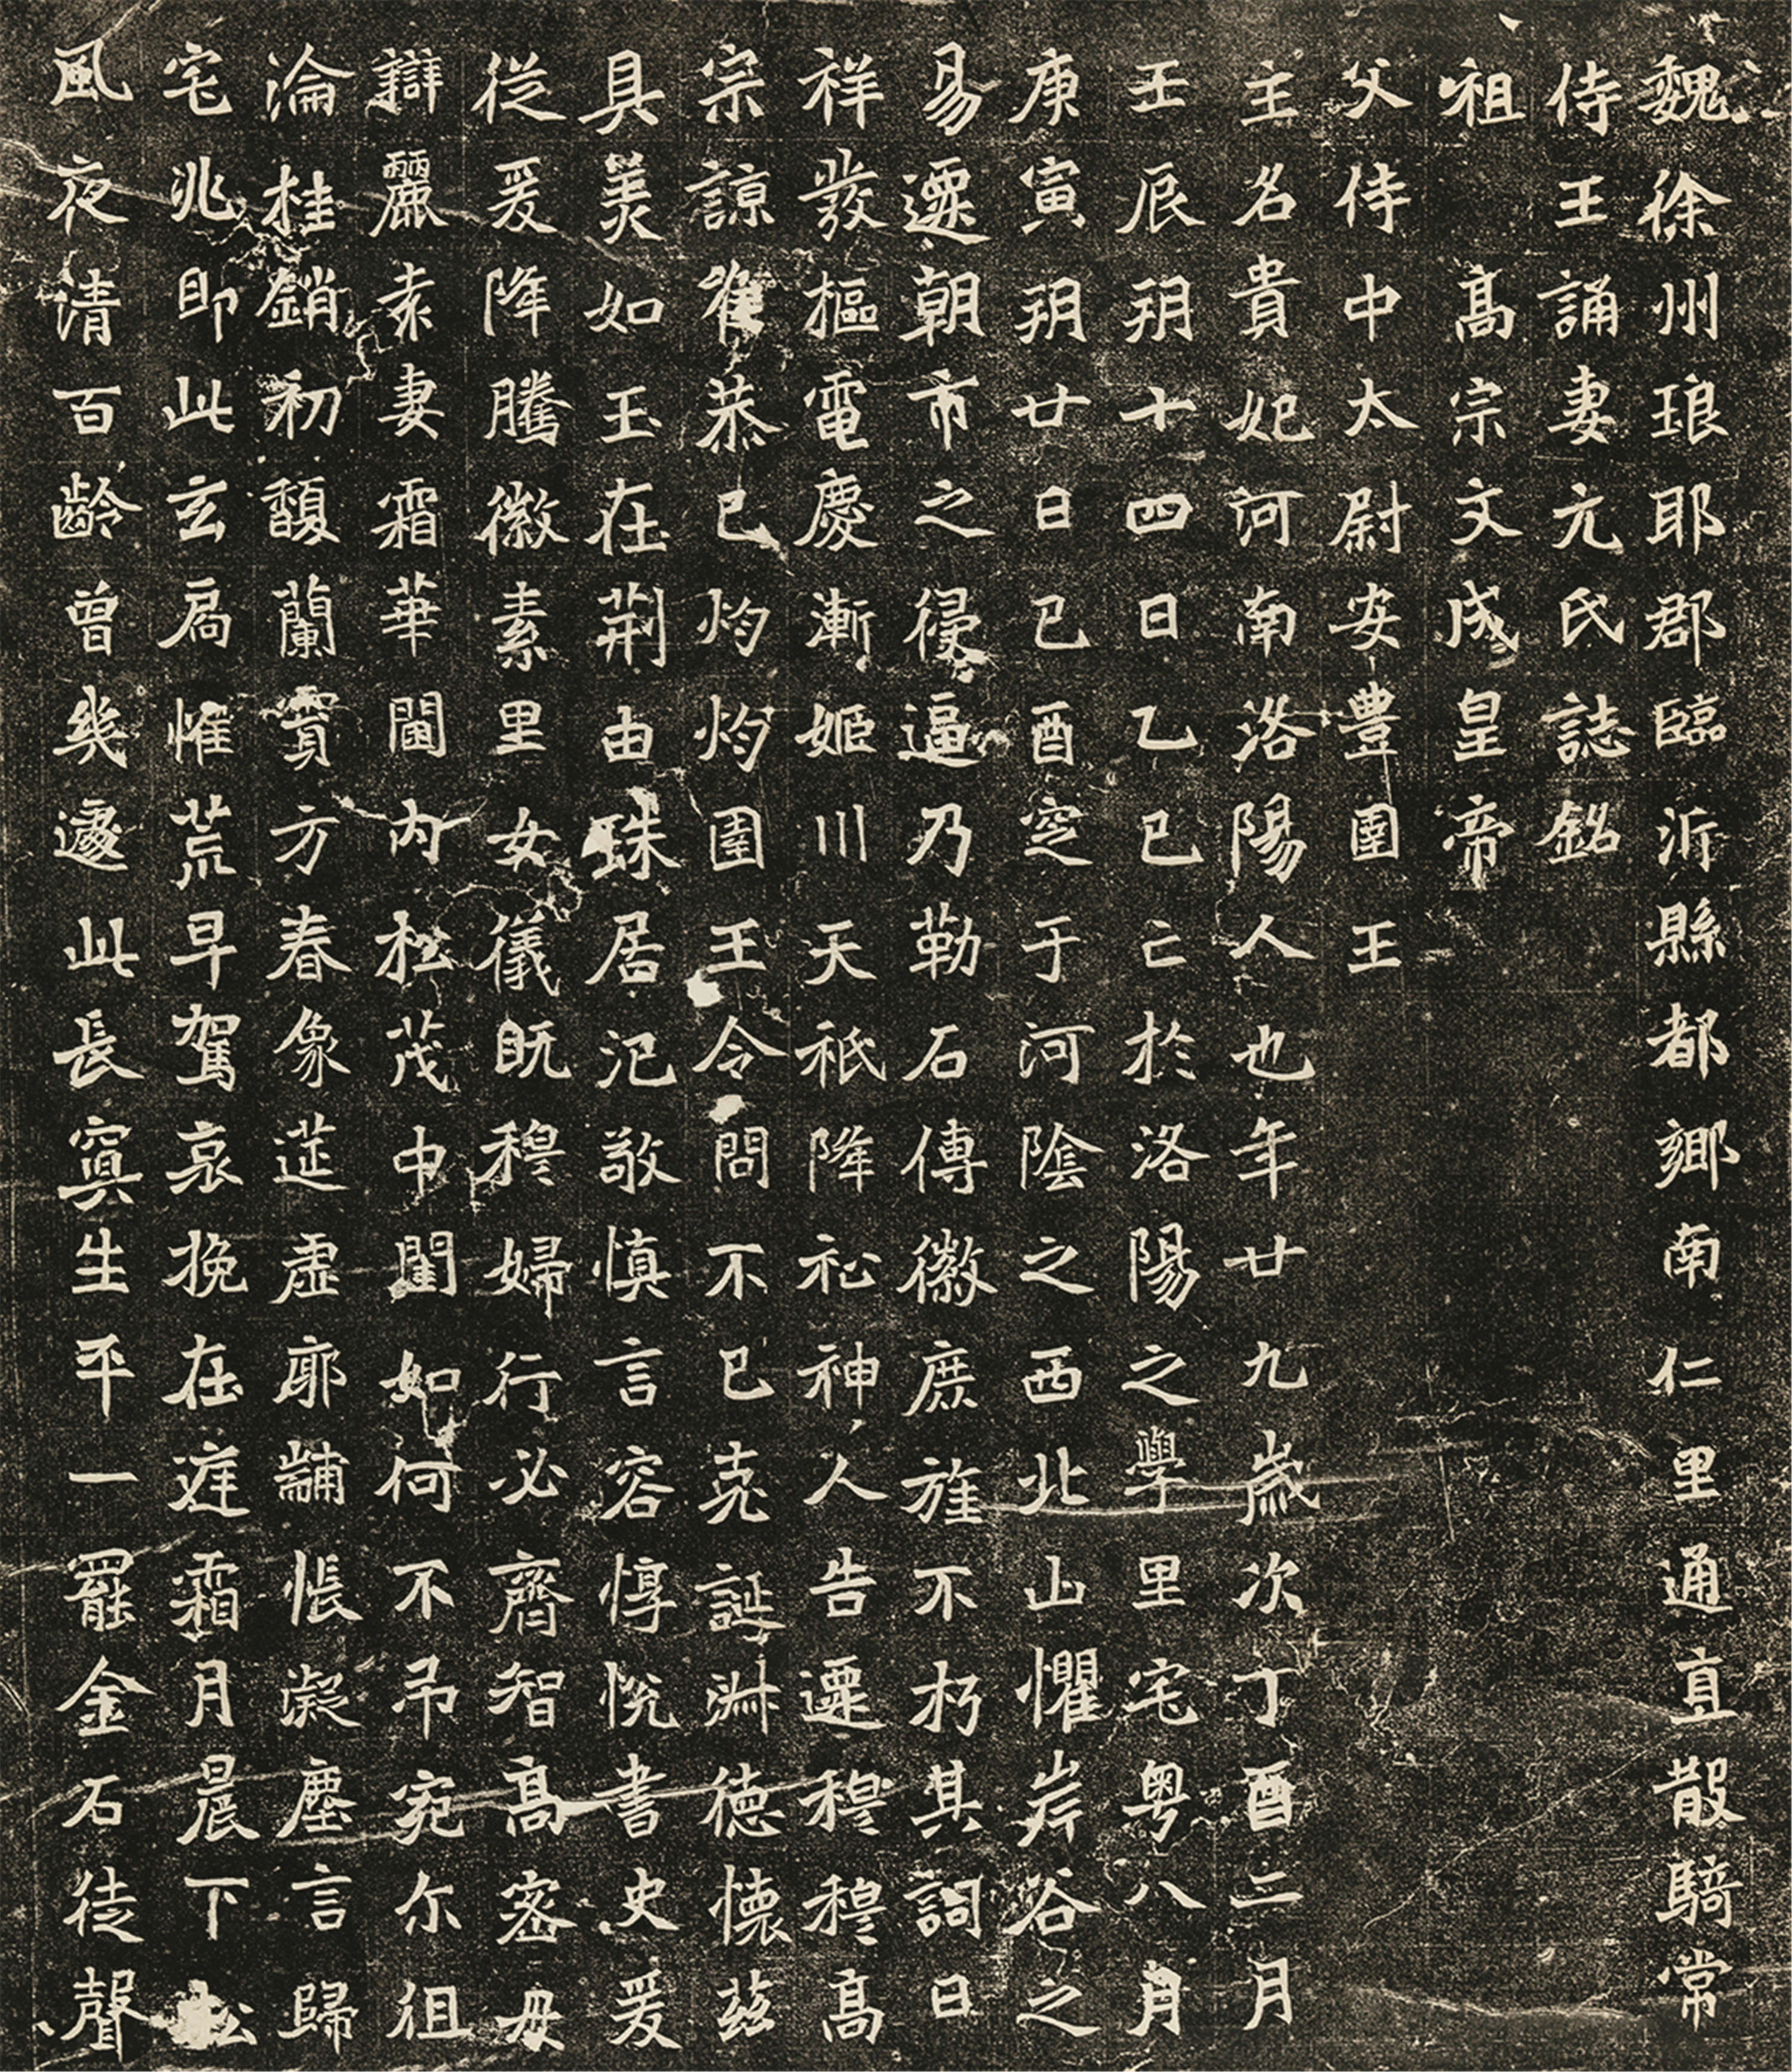 魏徐州琅耶郡臨沂縣都鄉南仁里通直散騎常
侍王誦妻元氏誌銘
祖高宗文成皇帝
父侍中太尉安豐圉王
主名貴妃河南洛陽人也年廿九歲次丁酉二月
壬辰玥十四日乙巳亡於洛陽之學里宅粤八月
庚寅玥廿日己酉窆于河陰之西北山懼岸谷之
易遷朝市之侵逼乃勒石傳徽庶旌不朽其詞曰
祥發樞電慶漸姬川天祇降祉神人告遷穆穆高
宗諒唯恭己灼灼圉王令問不已克誕淋德懷茲
具美如玉在荆由珠居氾敬慎言容惇悅書史爰
從爰降騰徽素里女儀既穆婦行必齊智高密母
辯麗素妻霜華閫內松茂中閨如何不弔宛尔徂
淪桂銷初馥蘭實方春象筵虛廓黼悵凝塵言歸
宅兆即此玄扃惟荒早駕哀挽在遅霜月晨下松
風夜清百齡曾幾遽此長寘生平一罷金石徒聲